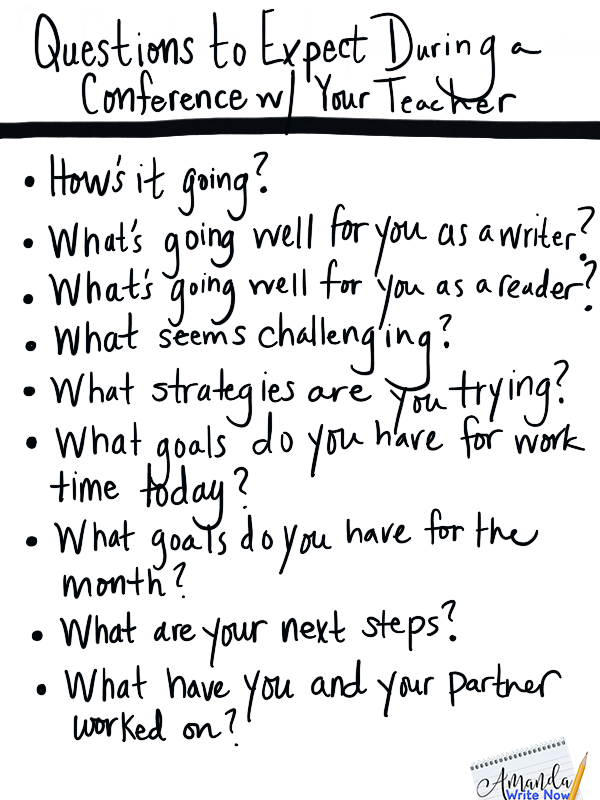 Questions to Expect During a
Conference w/ Your Teacher
• How's it going?
• What's going well for you as a writer?
• What's going well for you as a reader?
• What seems challenging?
• What strategies are you trying?
• What goals do you have for work
time today?
• What goals do you have for the
month?
• What are your next steps?
• What have you and your partner
worked on?
Amanda
Write Now